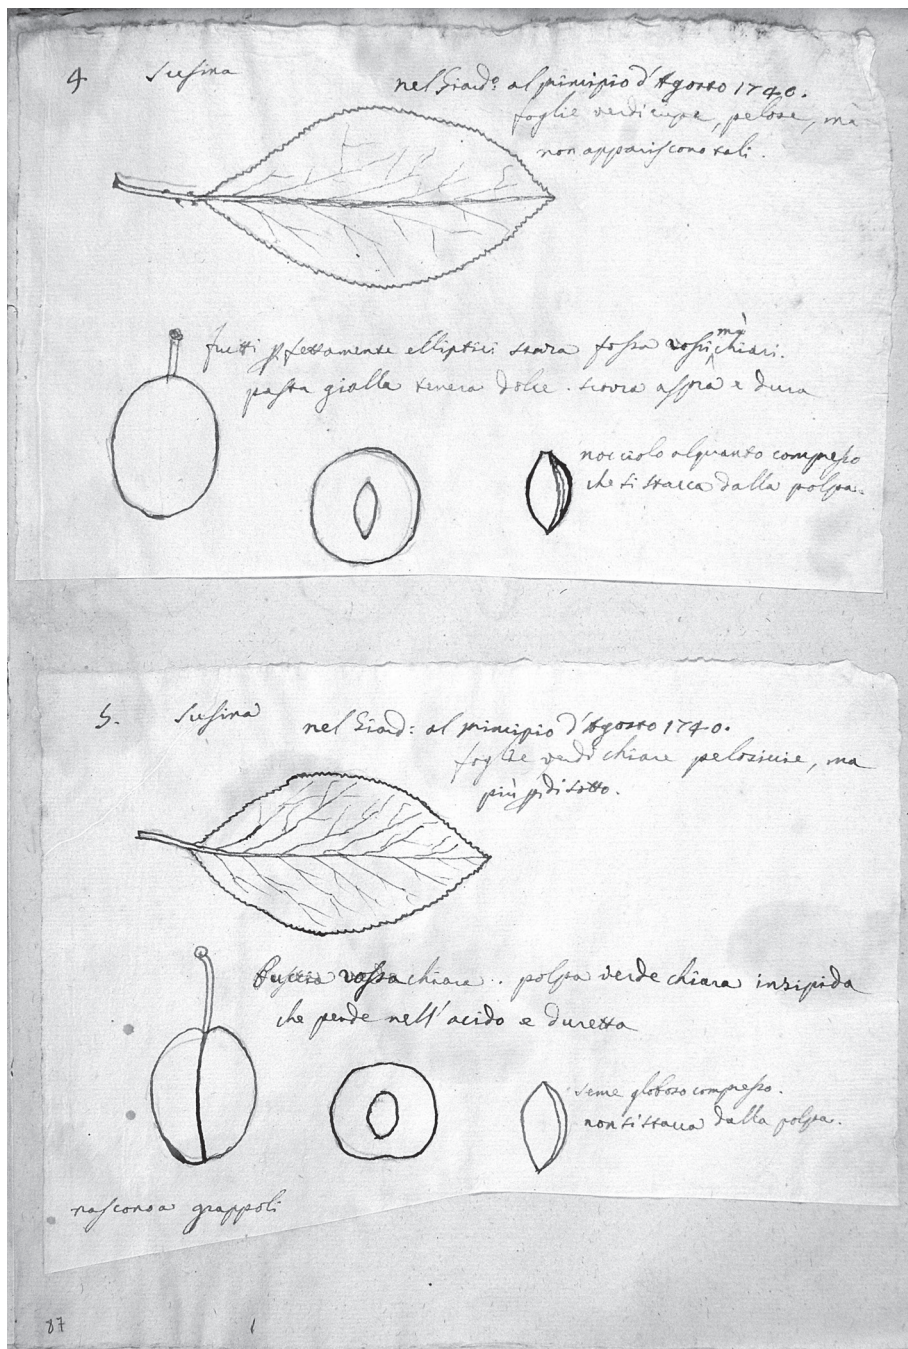 4 Susina
nel Giard:º al principio d'Agosto 1740.
foglie verdi cupe, pelose, mà
non appariscono tali.
frutti pfettamente elliptici scorza rossa mà
chiari.
pasta gialla tenera dolce. scorza asprà e dura
nocciolo alquanto compresso
che si stacca dalla polpa.
5. Susina
nel Giard: al principio d'Agosto 1740.
foglie verdi chiare pelosine, ma
più p di sotto.
Buccia rossa chiara. polpa verde chiara insipida
che pende nell'acido e duretta
seme globoso compresso.
non si stacca dalla polpa.
nascono a grappoli
87